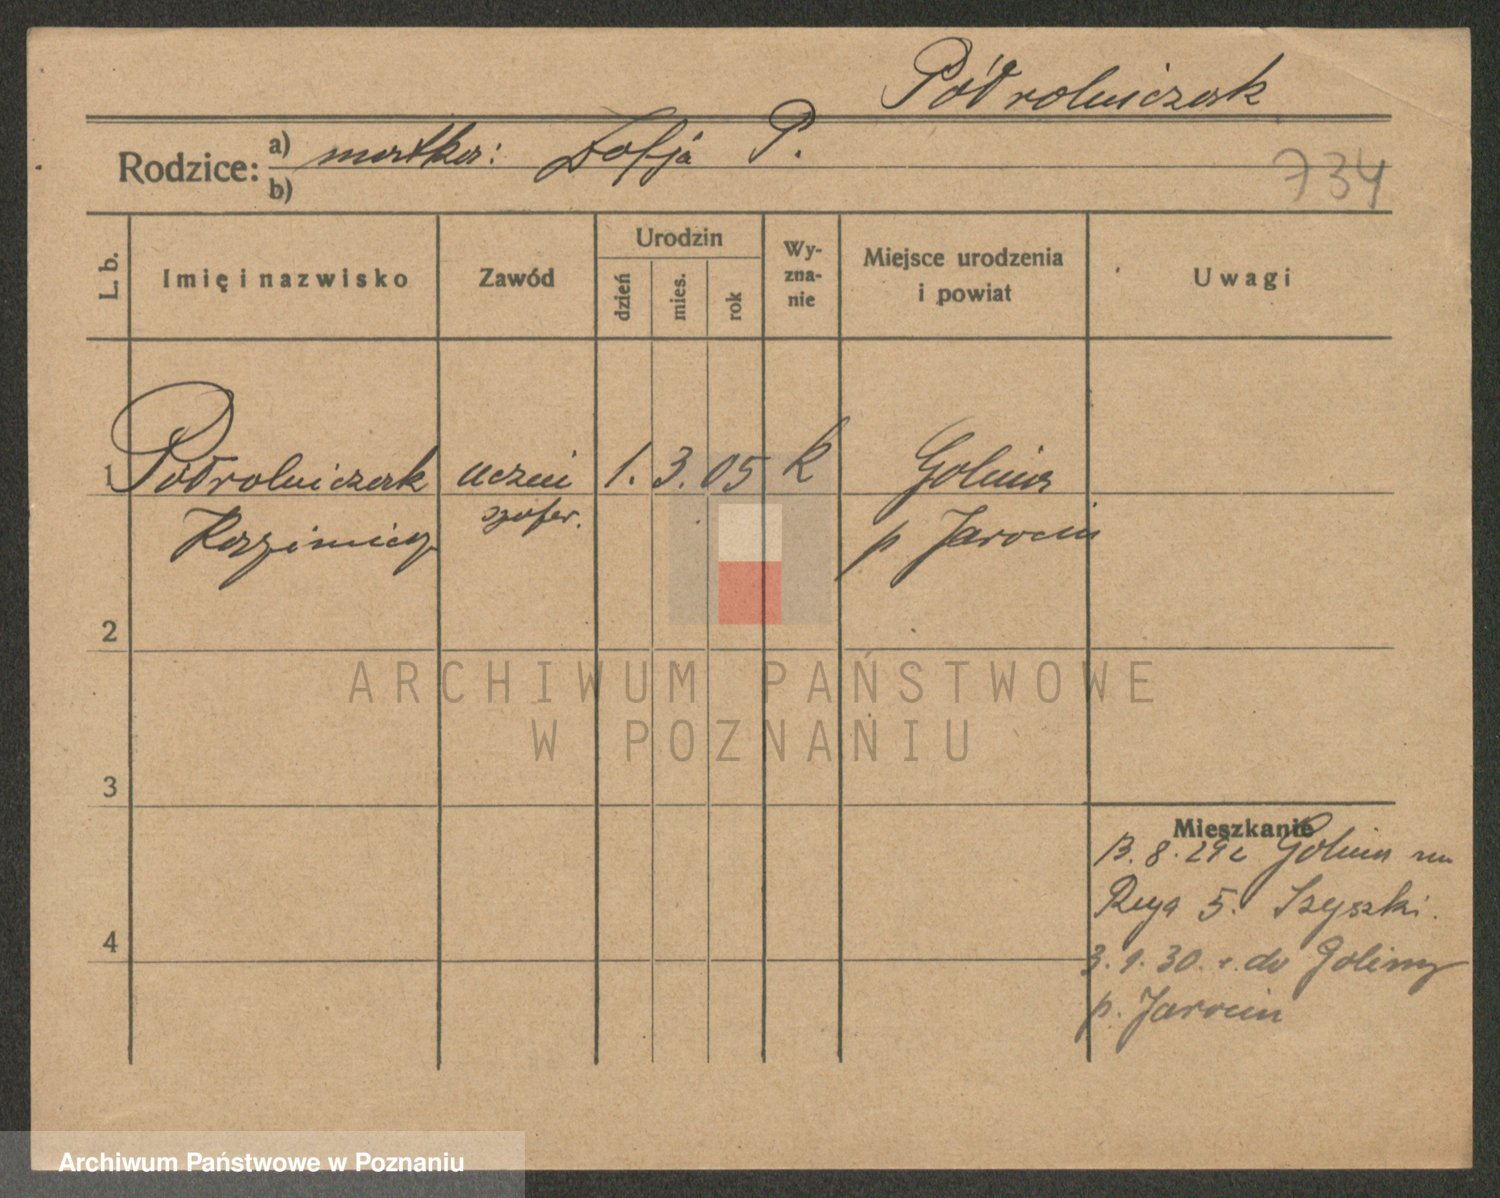 Półrolniczak
Rodzice: a) matka: Zofja P.
b)
734
L. b.
Imię i nazwisko
Zawód
Urodzin
dzień
mies.
rok
Wy-
zna-
nie
Miejsce urodzenia
i powiat
Uwagi
1 Półrolniczak uczeń 1. 3. 05 k Golina
Kazimierz szofer. p Jarocin
2
ARCHIWUM PAŃSTWOWE
W POZNANIU
3
Mieszkanie
13. 8. 29 z Golina na
Reja 5. Szyszki.
4
3. 1. 30. do Goliny
p. Jarocin
Archiwum Państwowe w Poznaniu